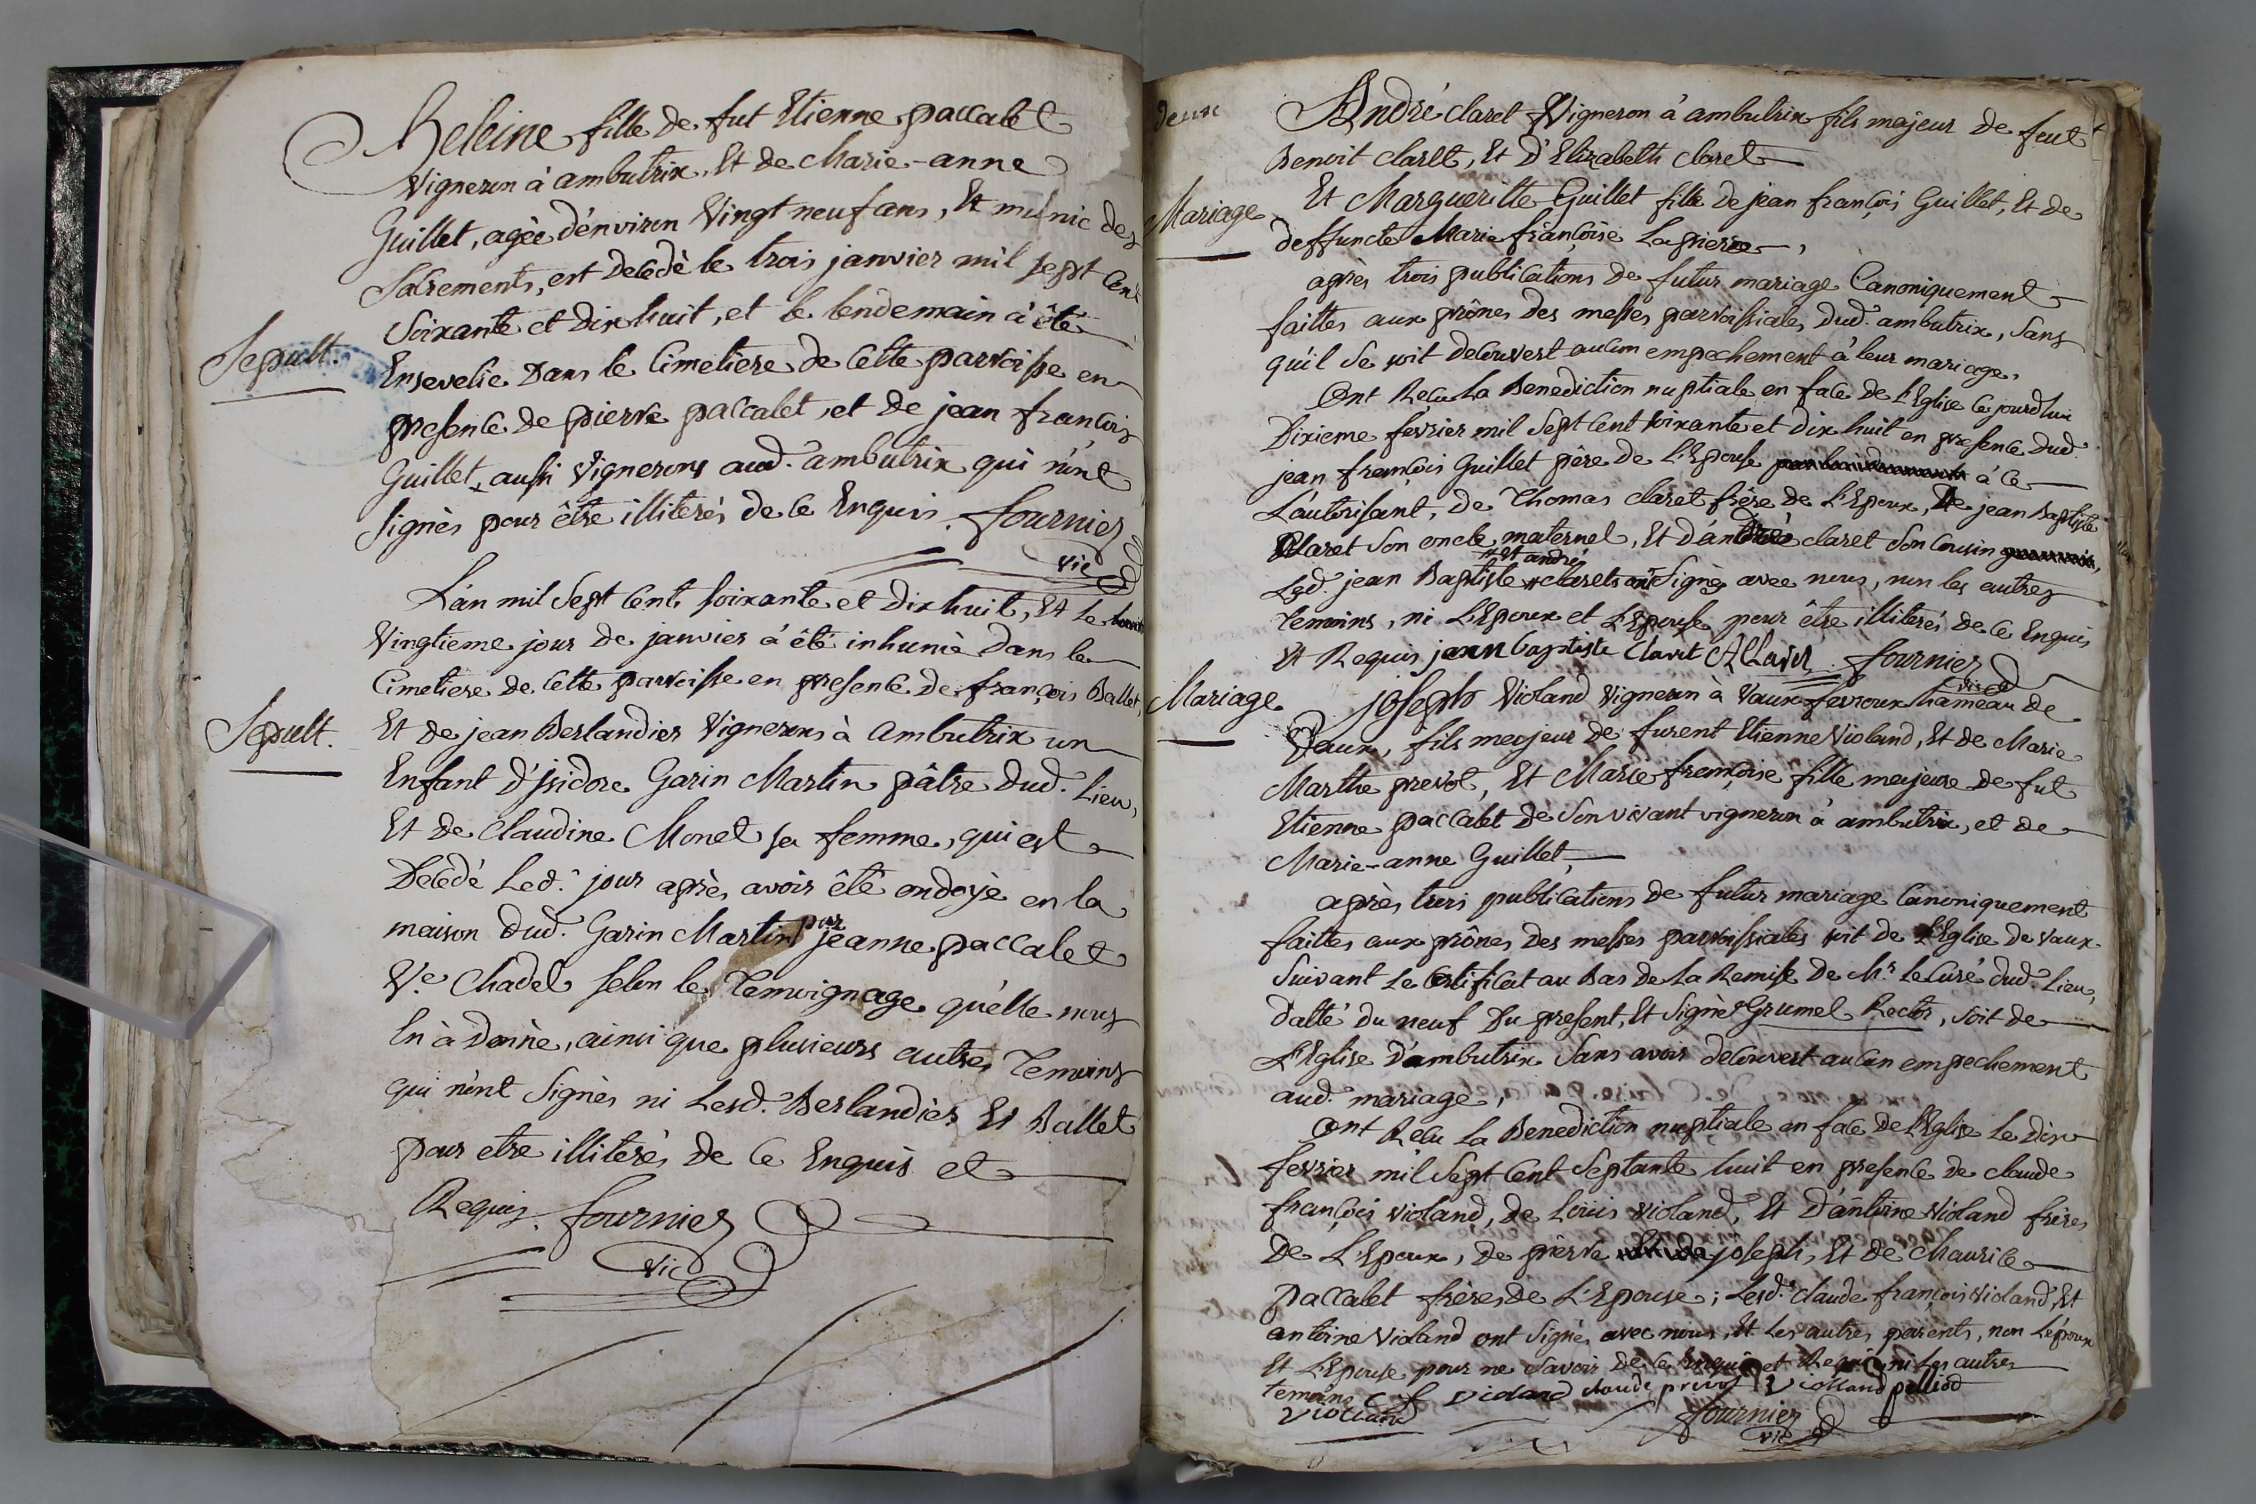 Heleine fille de fut Etienne paccalet
Vigneron à ambutrix, Et de Marie-anne
Guillet, agèe d'environ Vingt neuf ans, Et munie des
Sacrements, est decedè le trois janvier mil sept Cent
Soixante et Dix huit, et le lendemain à èté
Sepult.
Ensevelie Dans le Cimetiere de Cette parroisse en
presence de pierre paccalet, et de jean francois
Guillet, aussi Vignerons aud. ambutrix qui n'ont
Signès pour être illiterés de ce Enquis. fournier
vic
L'an mil Sept Cent soixante et Dix huit, Et Le
Vingtieme jour de janvier à été inhumé Dans le
Cimetiere de Cette parroisse en presence de françois Ballet,
Sepult.
Et de jean Berlandier Vignerons à Ambutrix un
Enfant d'jsidore Garin Martin pâtre Dud. Lieu,
Et de Claudine Monet sa femme, qui est
Decédé Led. jour après avoir êté ondoyè en la
maison Dud. Garin Martin par jeanne paccalet
Ve. Chadel selon le Temoignage qu'elle nous
en à donnè, ainsi que plusieurs autres Temoins
qui n'ont Signès ni Lesd. Berlandier Et Ballet
pour etre illiterés de Ce Enquis et
Requis. fournier
vic
deux
André claret Vigneron à ambutrix fils majeur de feut
Benoit claret, Et D'Elizabeth claret
Mariage
Et Margueritte Guillet fille de jean françois Guillet, Et de
deffuncte Marie françoise Lapierre,
après trois publications de futur mariage Canoniquement
faittes aux prônes des messes parroissiales dud. ambutrix, Sans
qu'il se soit decouvert aucun empechement à leur mariage,
Ont Reçu La Benediction nuptiale en face de L'Eglise Ce jourdhui
Dixieme fevrier mil Sept Cent soixante et Dix huit en presence dud.
jean françois Guillet père de L'Epouse à Ce
L'autorisant, de Thomas claret frère de L'Epoux, De jean Baptiste
Claret Son oncle maternel, Et d'andrè claret Son Cousin
Led. jean Baptiste et andré clarets ont Signés avec nous, non les autres
temoins, ni L'Epoux et L'Epouse pour être illiterés de Ce Enquis
Et Requis jean baptiste Claret A Claret fournier
vic
Mariage
joseph Violand Vigneron à Vaux fevroux hameau de
Vaux, fils majeur de furent Etienne Violand, Et de Marie
Marthe prevot, Et Marie françoise fille majeure de fut
Etienne paccalet de Son vivant vigneron à ambutrix, et de
Marie-anne Guillet,
après trois publications de futur mariage Canoniquement
faittes aux prônes des messes parroissiales soit de L'Eglise de Vaux
Suivant Le Certificat au Bas de La Remise de Mr. Le Curé dud. Lieu,
datté du neuf Du present, Et Signè Grumel Rector, soit de
L'Eglise D'ambutrix Sans avoir decouvert aucun empechement
aud. mariage,
Ont Reçu La Benediction nuptiale en face de L'Eglise Le Dix
fevrier mil Sept Cent Septante huit en presence de claude
françois violand, de Loüis violand, Et D'antoine Violand frères
De L'Epoux, de pierre joseph, Et de Maurice
Paccalet frères de L'Epouse; Lesd. claude françois violand, Et
antoine Violand ont Signés avec nous, Et Les autres parents, non L'époux
Et L'Epouse pour ne Savoir de Ce Enquis et Requis, ni les autres
temoins C f violand claude privot Violland
violland
fournier
vic